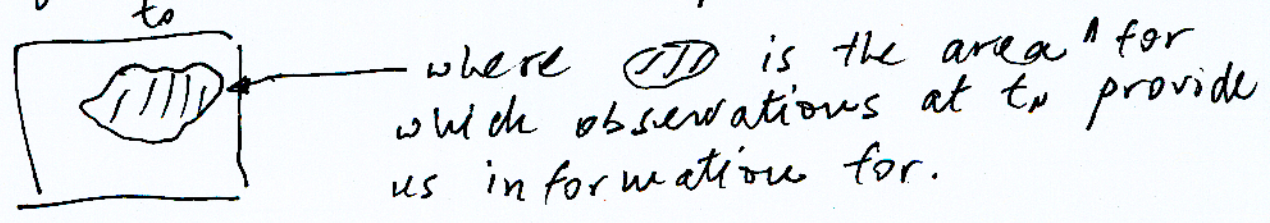 t₀
where is the area ^ for
which observations at tₙ provide
us information for.